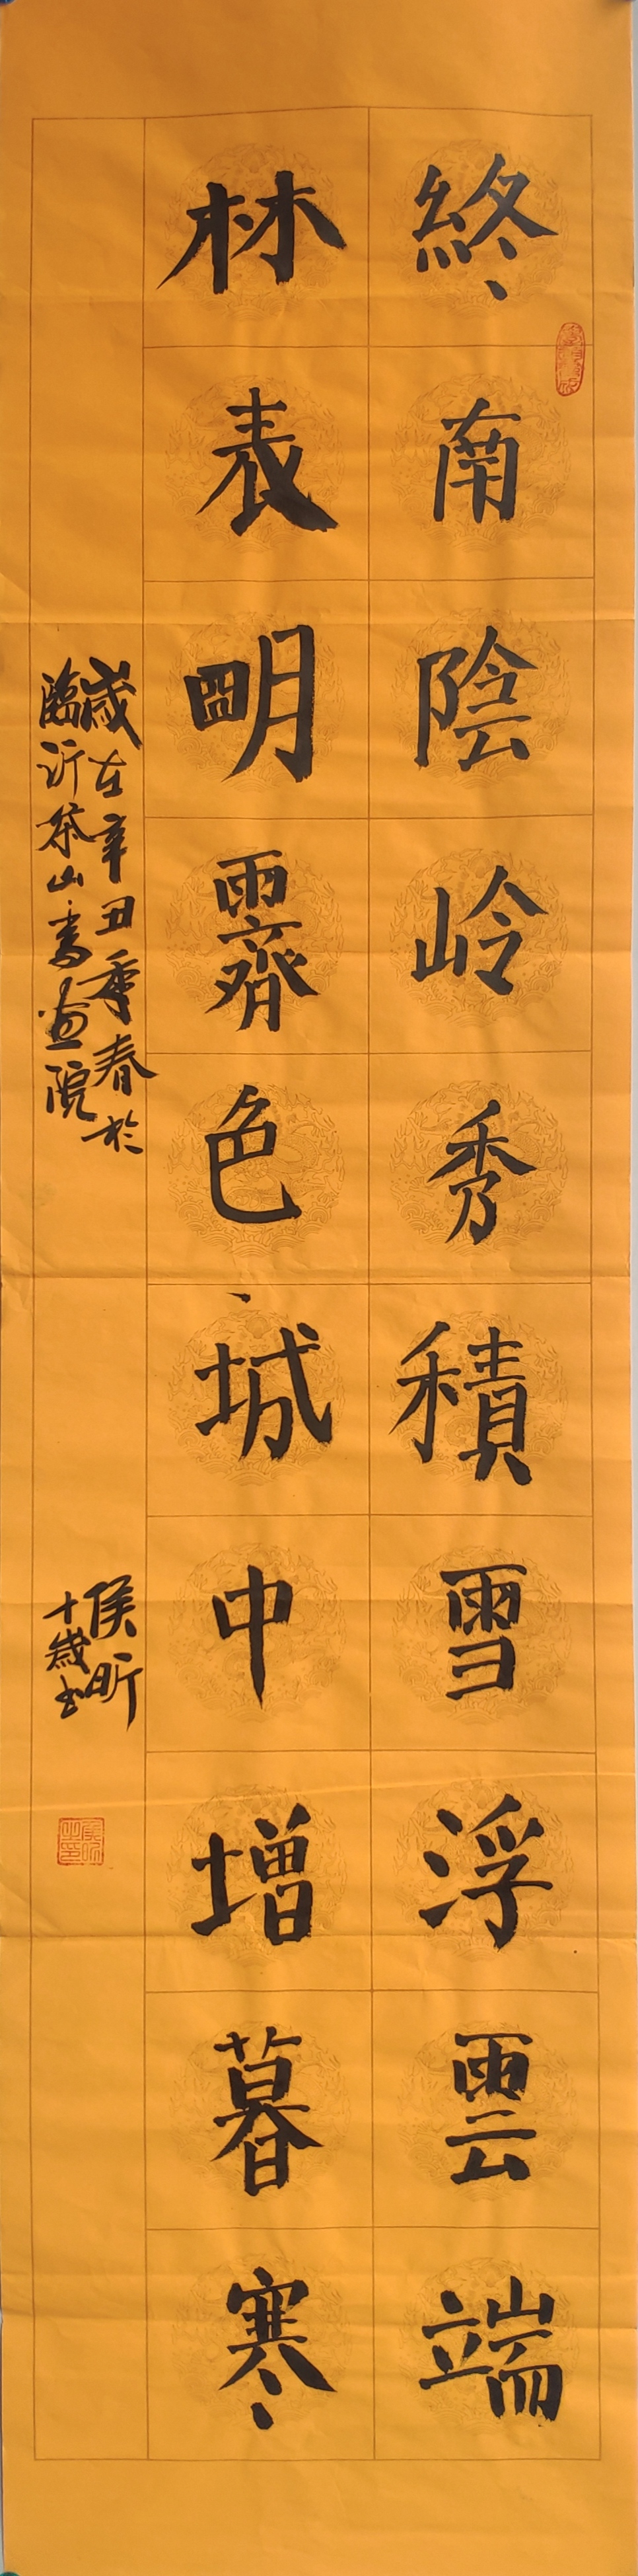 終南陰岭秀積雪浮雲端
林表明霽色城中增暮寒
歲在辛丑季春於
臨沂茶山書画院
侯昕
十歲书